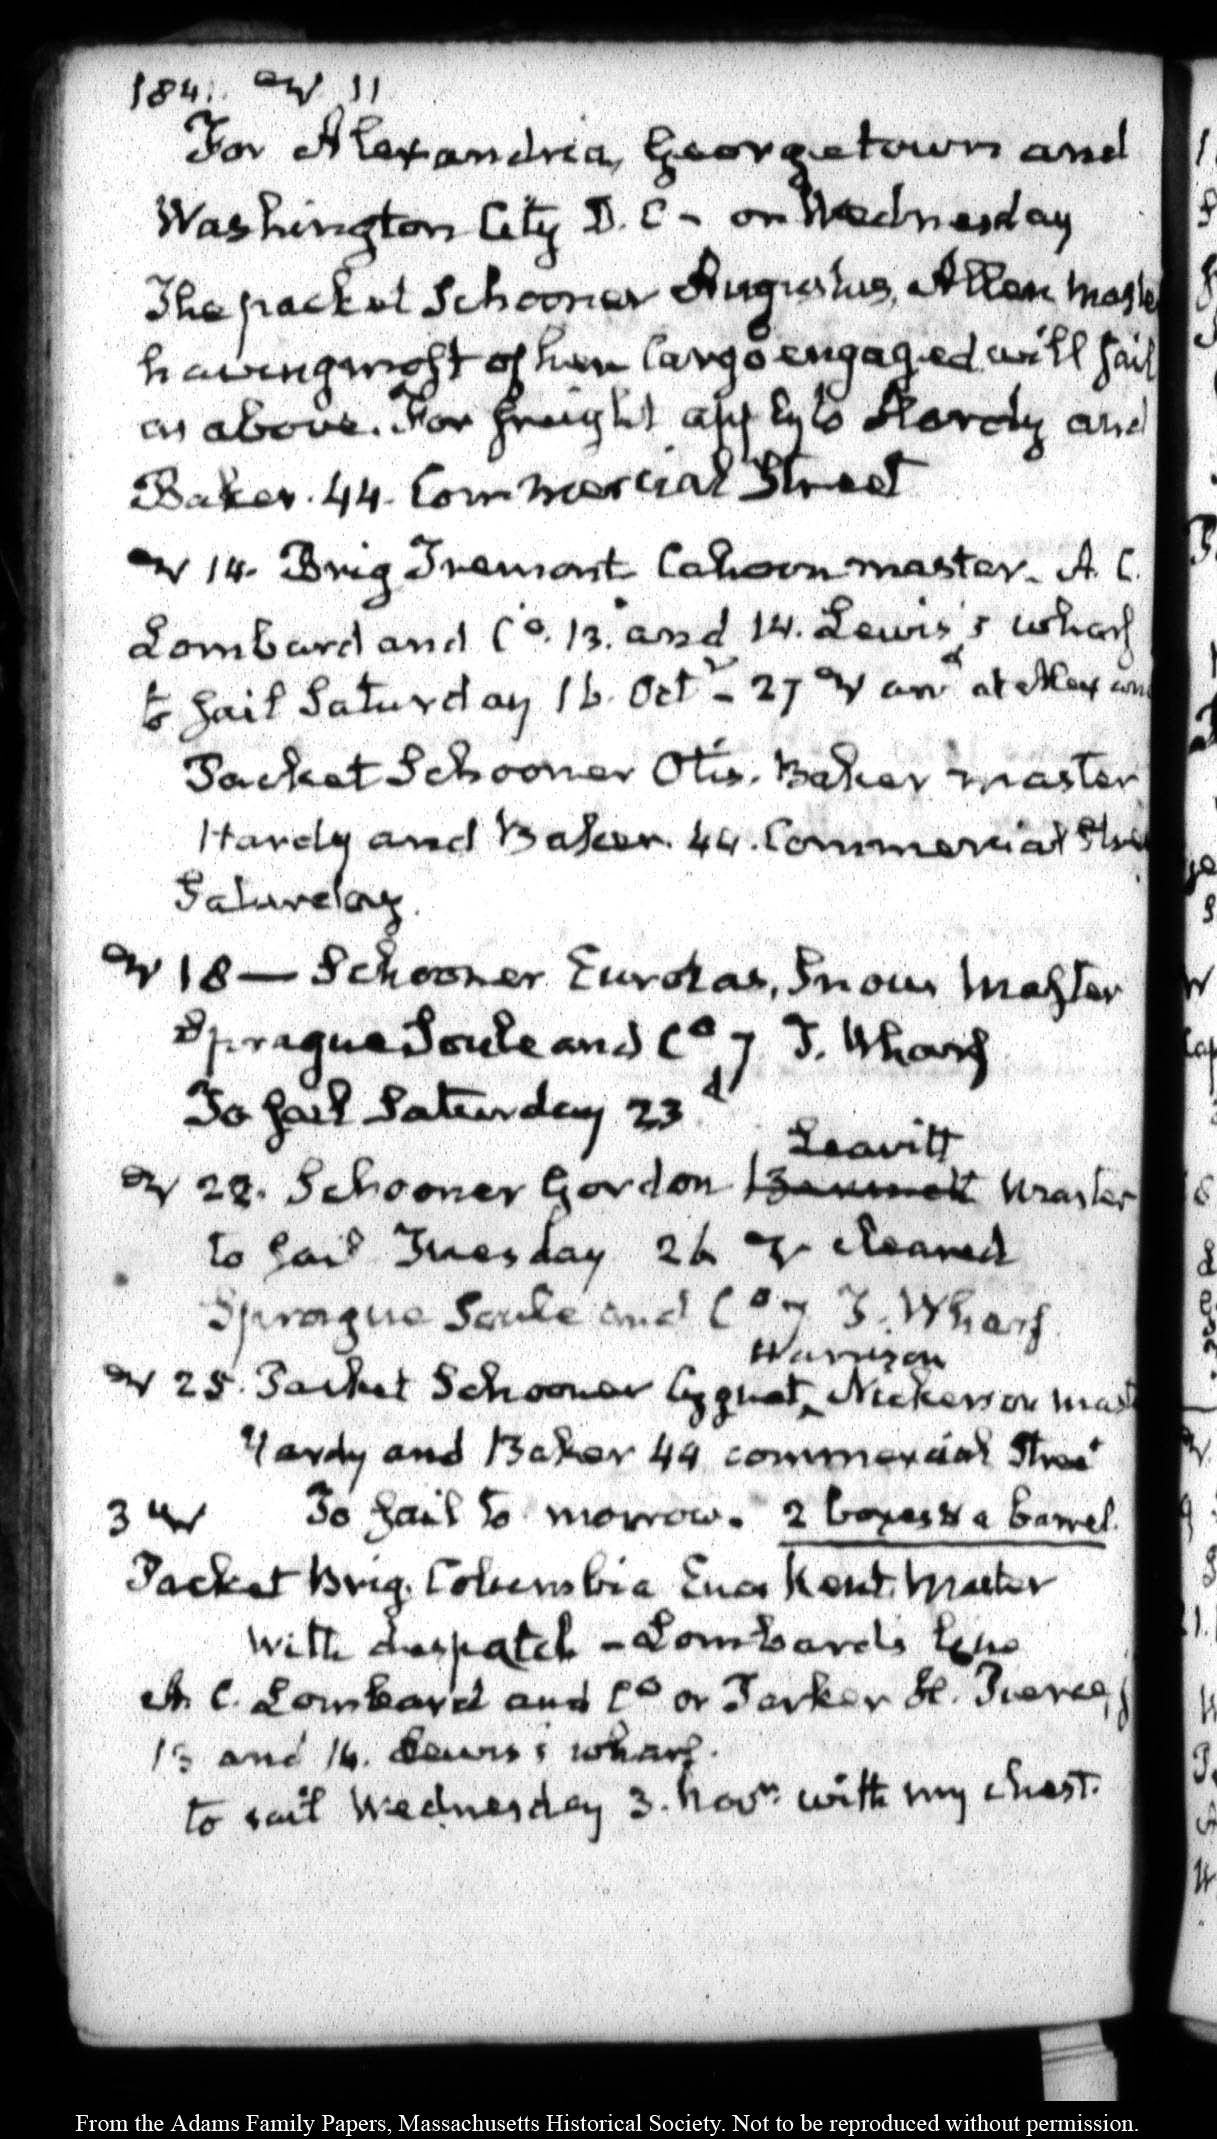 184. 11
For Alexandria, Georgetown and
Washington City D. C - on Wednesday
The packet Schooner Augustus, Allen Maste
having most of her Cargo engaged will sail
as above. For freight apply to Hardy and
Baker. 44. Commercial Street
14. Brig Tremont Cahoon master. A. C.
Lombard and Co. 13. and 14. Lewis's wharf
to sail Saturday 16. Octr - 27 arrd at Alexan
Packet Schooner Otis. Baker master
Hardy and Baker. 44. Commercial Stre
Saturday.
18 — Schooner Eurotas, Snow Master
Sprague Soule and Co 7 T. Wharf
To sail Saturday 23d
Leavitt
22. Schooner Gordon Master
to sail Tuesday 26 cleared
Sprague Soule and Co 7 T. Wharf
Harrison
25. Packet Schooner Cygnet ‸ Nickerson mast
Hardy and Baker 44 commercial Street
3 To sail to morrow. 2 boxes & a barrel.
Packet Brig. Columbia Kent. Master
With despatch - Lombards line
A. C. Lombard and Co or Parker H. Pierce,
13 and 14. Lewis's wharf.
to sail Wednesday 3. Novr. with my chest.
From the Adams Family Papers, Massachusetts Historical Society. Not to be reproduced without permission.